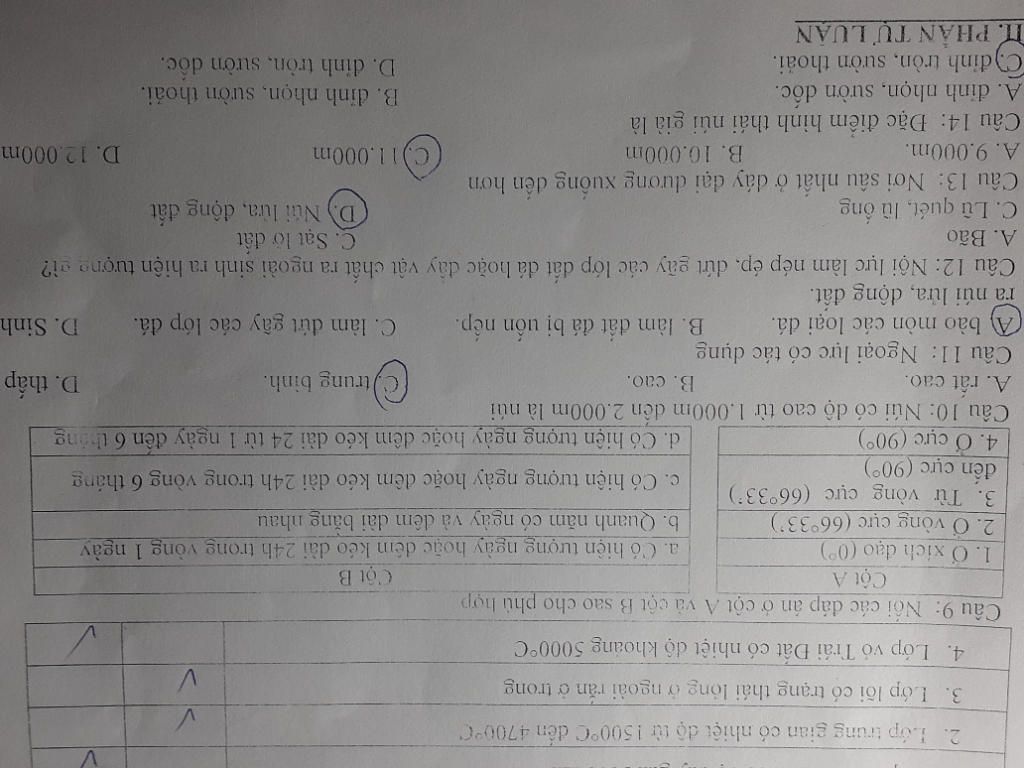 2. Lớp trung gian có nhiệt độ từ 1500°C đến 4700°C
3. Lớp lõi có trạng thái lỏng ở ngoài rắn ở trong
4. Lớp vỏ Trái Đất có nhiệt độ khoảng 5000°C
Câu 9: Nối các đáp án ở cột A và cột B sao cho phù hợp
Cột A Cột B
1. Ở xích đạo (0°) a. Có hiện tượng ngày hoặc đêm kéo dài 24h trong vòng 1 ngày
2. Ở vòng cực (66°33’) b. Quanh năm có ngày và đêm dài bằng nhau
3. Từ vòng cực (66°33’) c. Có hiện tượng ngày hoặc đêm kéo dài 24h trong vòng 6 tháng
đến cực (90°)
4. Ở cực (90°) d. Có hiện tượng ngày hoặc đêm kéo dài 24 từ 1 ngày đến 6 tháng
Câu 10: Núi có độ cao từ 1.000m đến 2.000m là núi
A. rất cao. B. cao. C. trung bình. D. thấp
Câu 11: Ngoại lực có tác dụng
A. bào mòn các loại đá. B. làm đất đá bị uốn nếp. C. làm đứt gãy các lớp đá. D. Sinh
ra núi lửa, động đất.
Câu 12: Nội lực làm nép ép, đứt gãy các lớp đất đá hoặc đẩy vật chất ra ngoài sinh ra hiện tượng gì?
A. Bão C. Sạt lở đất
C. Lũ quét, lũ ống D. Núi lửa, động đất
Câu 13: Nơi sâu nhất ở đáy đại dương xuống đến hơn
A. 9.000m. B. 10.000m C. 11.000m D. 12.000m
Câu 14: Đặc điểm hình thái núi già là
A. đỉnh nhọn, sườn dốc. B. đỉnh nhọn, sườn thoải.
C. đỉnh tròn, sườn thoải. D. đỉnh tròn, sườn dốc.
II. PHẦN TỰ LUẬN